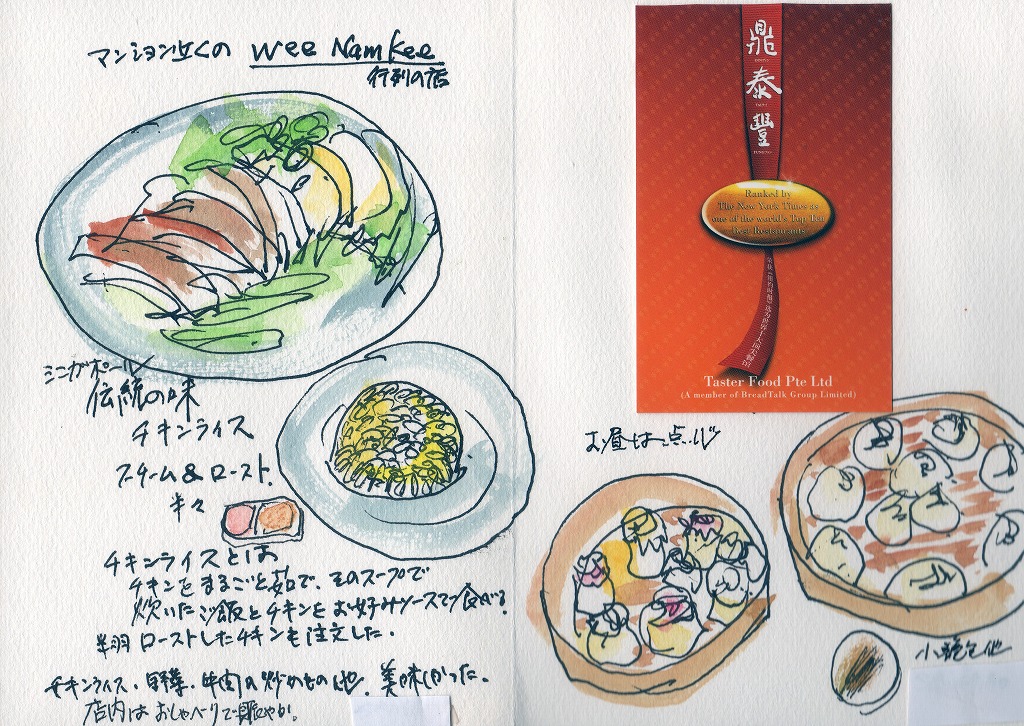 マンション近くの Wee Nam Kee
行列の店
シンガポール
伝統の味
チキンライス
スチーム&ロースト
半々
チキンライスとは
チキンをまるごと茹で、そのスープで
炊いたご飯とチキンをお好みソースで食べる
半羽ローストしたチキンも注文した。
チキンライス・野菜・牛肉の炒めもの他、美味しかった。
店内はおしゃべりで賑やか。
鼎
泰
豐
Ranked by
The New York Times as
one of the world's Top Ten
Best Restaurants
Taster Food Pte Ltd
(A member of BreadTalk Group Limited)
お昼は点心
小籠包他